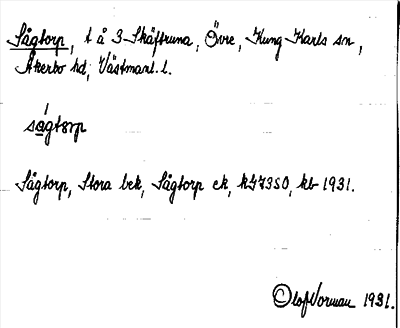 Sågtorp, t å 3 Skäftruna, Övre, Kung Karls sn,
Åkerbo hd, Västmanl. l.
sågtorp
Sågtorp, Stora bek, Sågtorp ek, kb 1931.
Olof Vorman 1931.